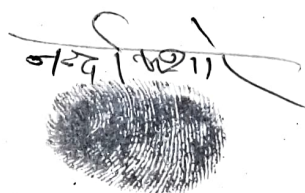 नन्दकिशोर